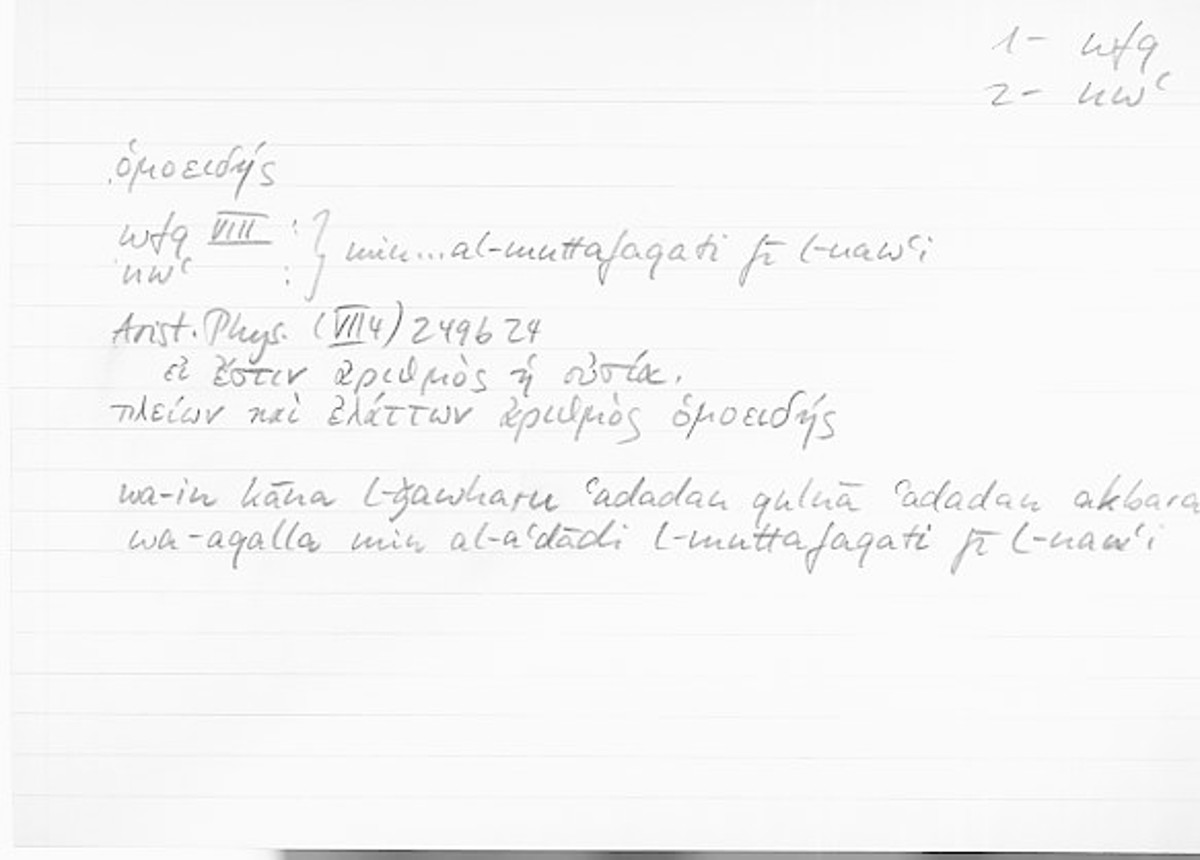 1- wfq
2- nwʿ
ὁμοειδής
wfq VIII :
nwʿ : } min...al-muttafaqati fī l-nawʿi
Arist. Phys. (VII 4) 249b 24
εἰ ἔστιν ἀριθμὸς ἡ οὐσία,
πλείων καὶ ἐλάττων ἀριθμὸς ὁμοειδής
wa-in kāna l-ǧawharu ʿadadan qulnā ʿadadan akbara
wa-aqalla min al-aʿdādi l-muttafaqati fī l-nawʿi